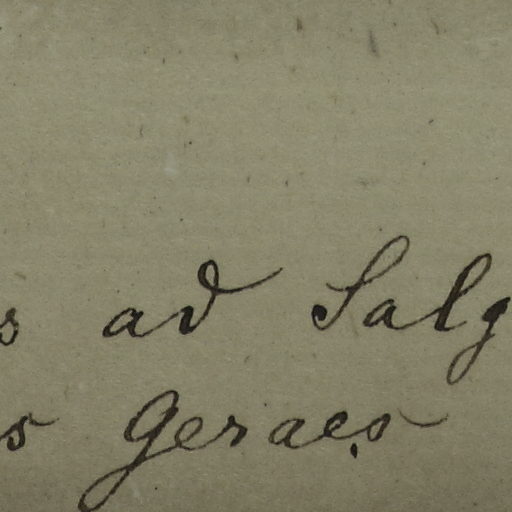 s ad Salg
s Geraes